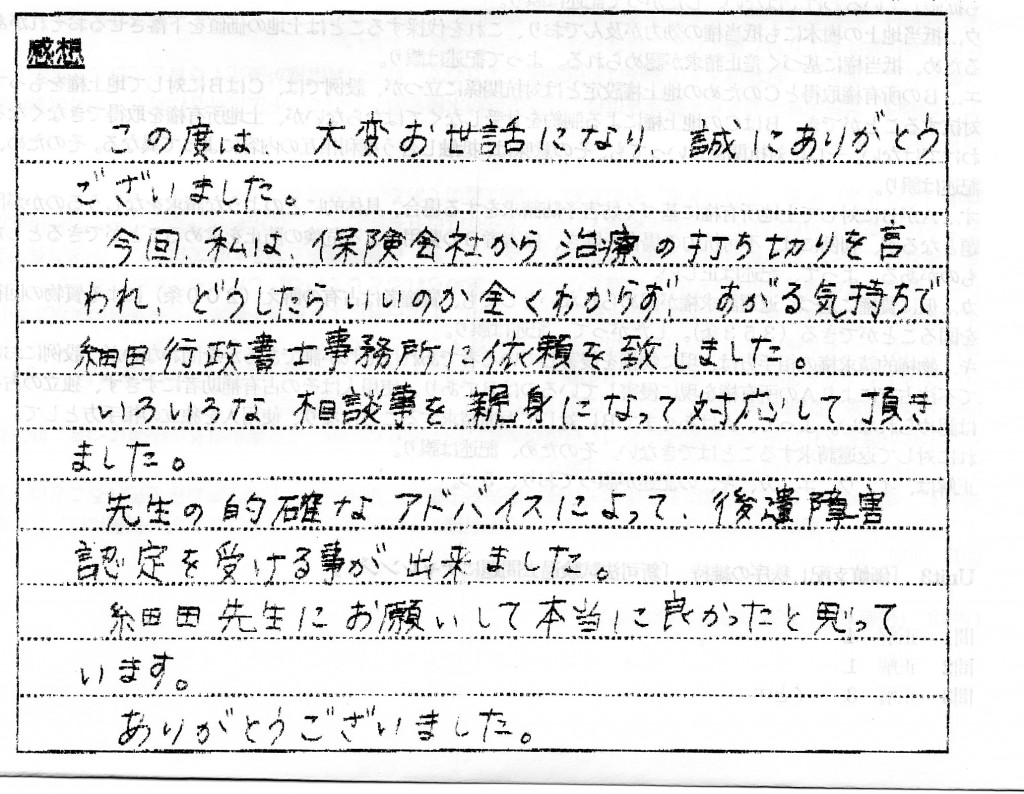 感想
この度は、大変お世話になり、誠にありがとう
ございました。
今回、私は、保険会社から治療の打ち切りを言
われ、どうしたらいいのか全くわからず、あがる気持ちで
細田行政書士事務所に依頼を致しました。
いろいろな相談事を親身になって対応して頂き
ました。
先生の的確なアドバイスによって、後遺障害
認定を受ける事が出来ました。
細田先生にお願いして本当に良かったと思って
います。
ありがとうございました。